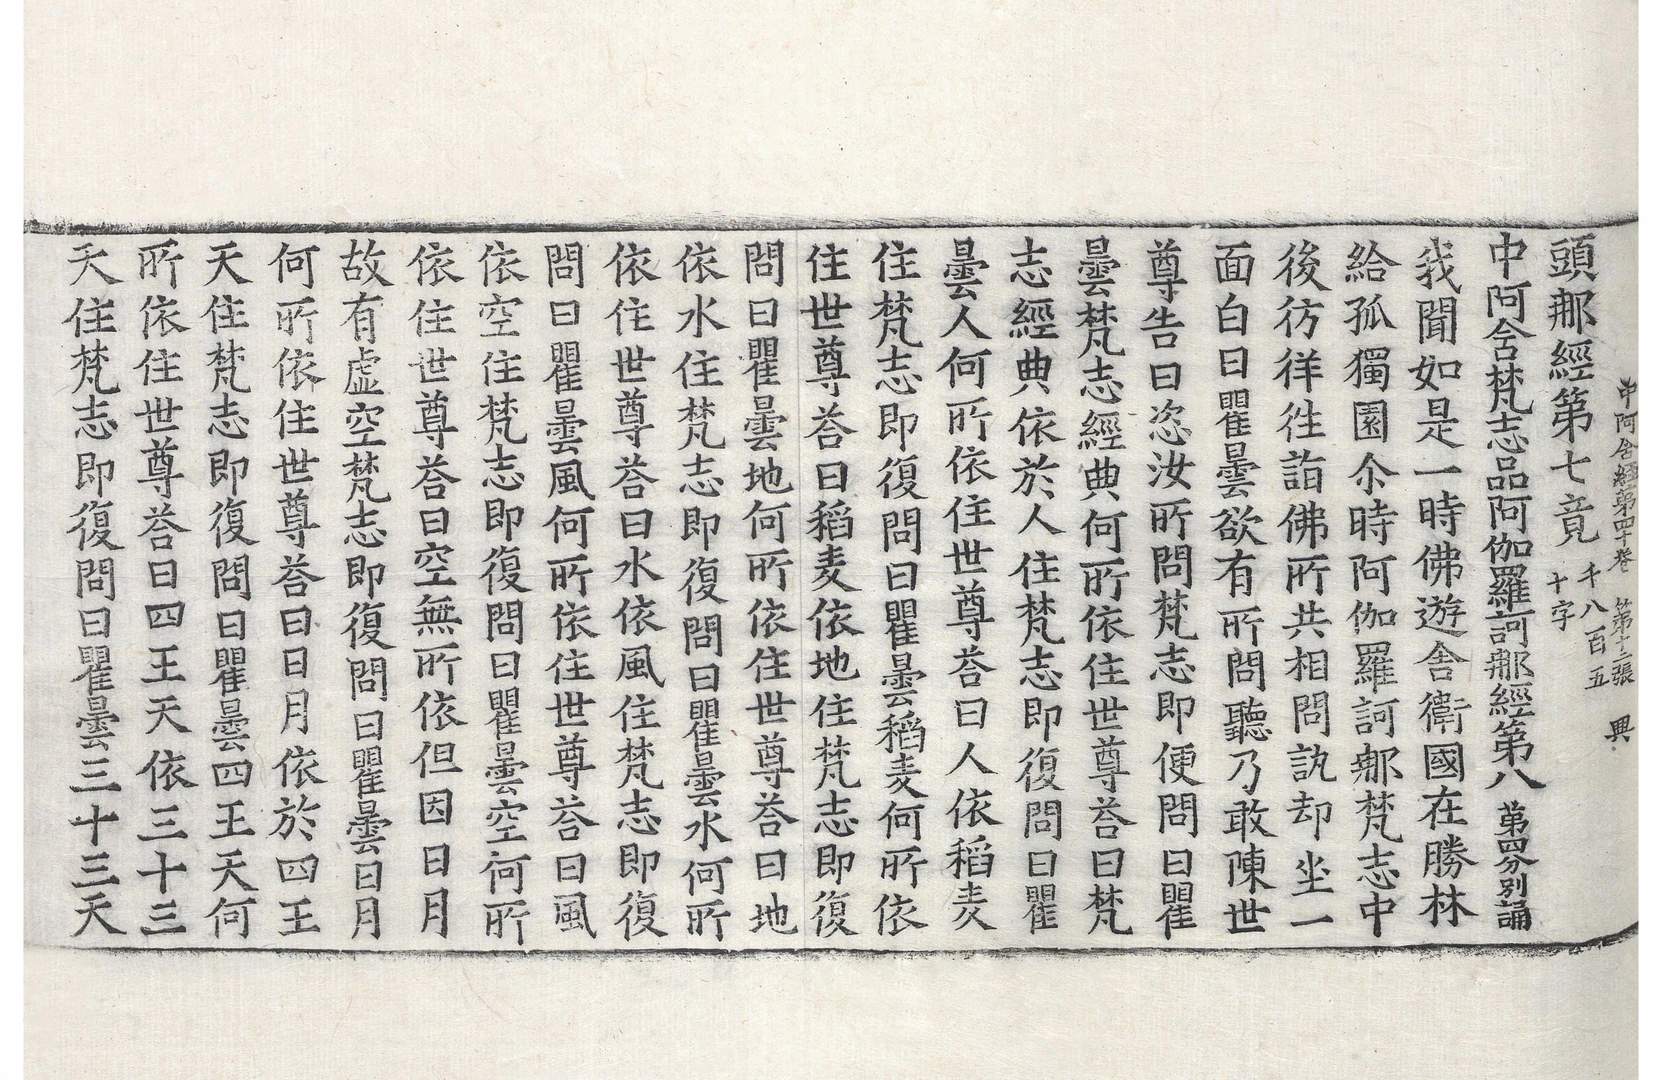 中阿含經第四十卷 第十二張 興
頭那經第七竟 千八百五十字
中阿含梵志品阿伽羅訶那經第八 第四分別誦
我聞如是一時佛遊舍衛國在勝林
給孤獨園尒時阿伽羅訶那梵志中
後彷徉徃詣佛所共相問訊却坐一
面白曰瞿曇欲有所問聽乃敢陳世
尊告曰恣汝所問梵志即便問曰瞿
曇梵志經典何所依住世尊荅曰梵
志經典依於人住梵志即復問曰瞿
曇人何所依住世尊荅曰人依稻麦
住梵志即復問曰瞿曇稻麦何所依
住世尊荅曰稻麦依地住梵志即復
問曰瞿曇地何所依住世尊荅曰地
依水住梵志即復問曰瞿曇水何所
依住世尊荅曰水依風住梵志即復
問曰瞿曇風何所依住世尊荅曰風
依空住梵志即復問曰瞿曇空何所
依住世尊荅曰空無所依但因日月
故有虛空梵志即復問曰瞿曇日月
何所依住世尊荅曰日月依於四王
天住梵志即復問曰瞿曇四王天何
所依住世尊荅曰四王天依三十三
天住梵志即復問曰瞿曇三十三天